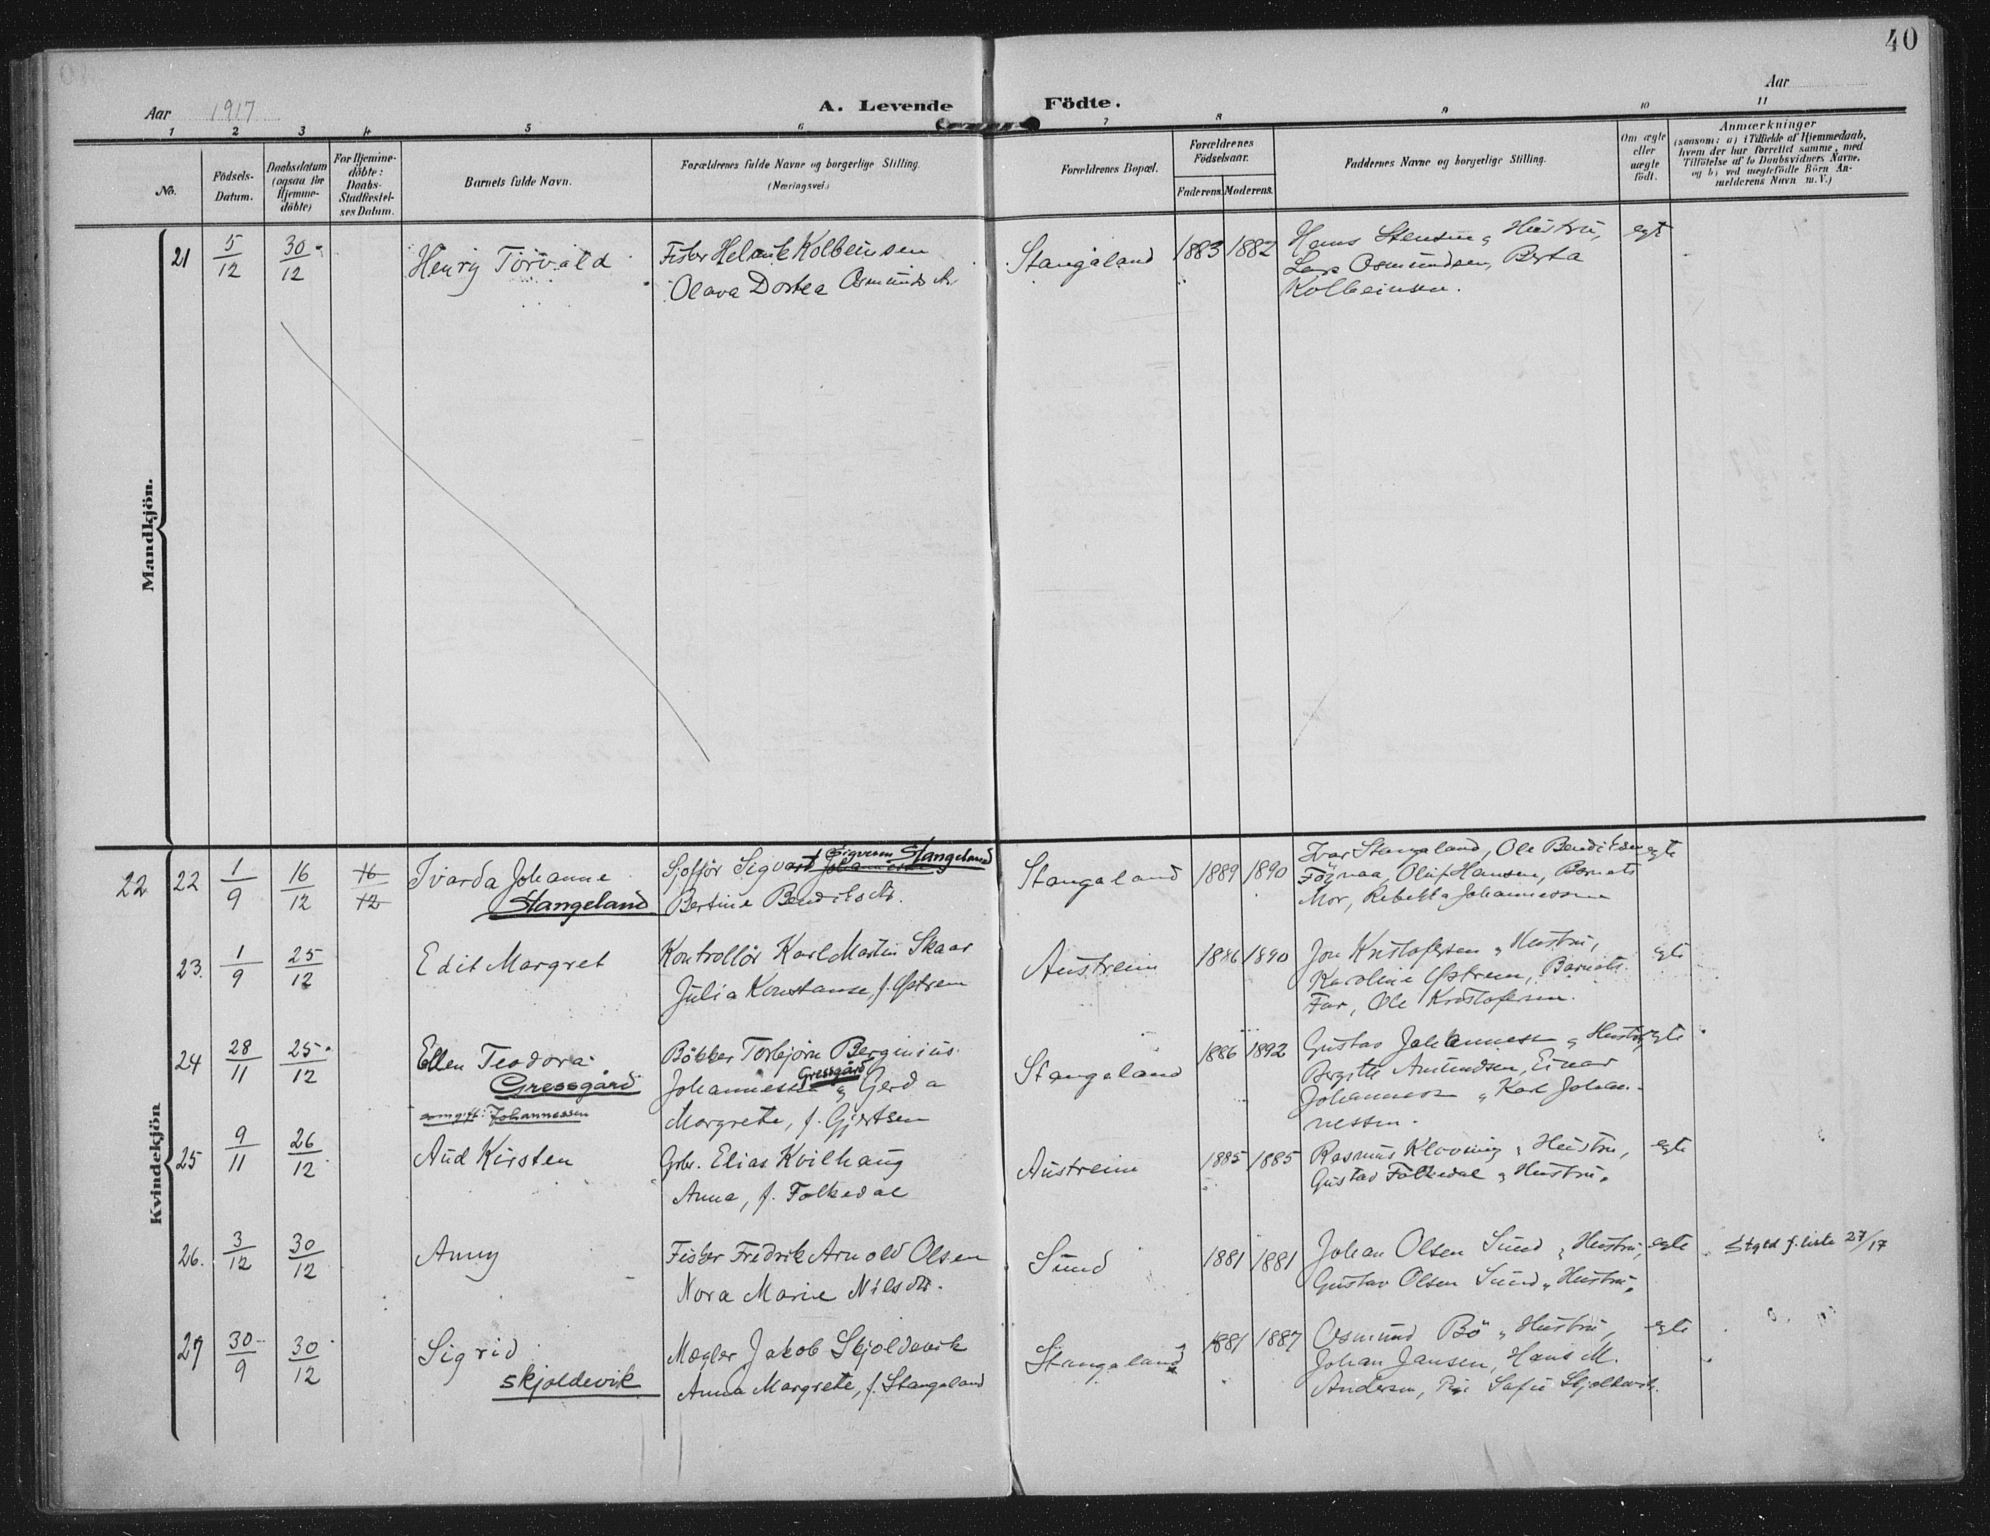 40
Aar 1917
A. Levende Födte.
Aar
1 2 3 4 5 6 7 8 9 10 11
No.
Födsels-Datum.
Daabsdatum (ogsaa for Hjemme-döbte)
For Hjemme-döbte: Daabs-Stadfestel-ses Datum.
Barnets fulde Navn.
Forældrenes fulde Navne og borgerlige Stilling.
(Næringsvei.)
Forældrenes Bopæl.
Forældrenes Födselsaar.
Faderens. Moderens.
Faddernes Navne og borgerlige Stilling.
Om ægte eller uægte födt.
Anmærkninger
(saasom: a) i Tilfælde af Hjemmedaab,
hvem der har forrettet samme, med
Tilföielse af to Daabsvidners Navne,
og b) ved uægtefödte Börn An-
melderens Navn m. V.)
Mandkjön.
21 5/12 30/12 Henry Torvald Fisker Helmik Kolbeinsen Stangaland 1883 1882 Hans Stensen & Hustru, egt
Olava Dortea Osmundsdtr. Lars Osmundsen, Berta
Kolbeinsen.
Kvindekjön
22 22 1/9 16/12 16/12 Ivarda Johanne Sjofför Sigvard Johannesen Sigversen Stangeland Stangaland 1889 1890 Ivar Stangaland, Ole Bendiksen egte
Stangeland Bertine Bendiksdtr. Fögnaa, Oluf Hansen, Barnets
Mor, Rebekka Johannessen
23. 1/9 25/12 Edit Margret Kontrollör Karl Martin Skaar Austreim 1886 1890 Jon Kristofersen & Hustru, egte
Julia Konstanse f. Østrem Karoline Østrem, Barnets
Far, Ole Kristofersen.
24 28/11 25/12 Ellen Teodora Bökker Torbjørn Berginius Stangaland 1886 1892 Gustav Johannessen & Hustru, egte
Gressgård Johannessen Gressgård & Gerda Bergitte Amundsen, Einar
omgift: Johannessen Margrete, f. Gjertsen Johannessen & Karl Johan-
nessen.
25 9/11 26/12 Aud Kirsten Grbr. Elias Kvilhaug Austreim 1885 1885 Rasmus Kloving & Hustru, egte
Anna, f. Folkedal Gustav Folkedal & Hustru.
26. 3/12 30/12 Anny Fisker Fredrik Arnold Olsen Sund 1881 1881 Johan Olsen Sund & Hustru, egte
Nora Marie Nilsdtr. Gustav Olsen Sund & Hustru. 27/17
27 30/9 30/12 Sigrid Mægler Jakob Skjoldevik Stangaland 1881 1887 Osmund Bö & Hustru, egte
Skjoldevik Anna Margrete, f. Stangaland Johan Jansen, Hans M.
Andersen, Sofie Skjoldevik.